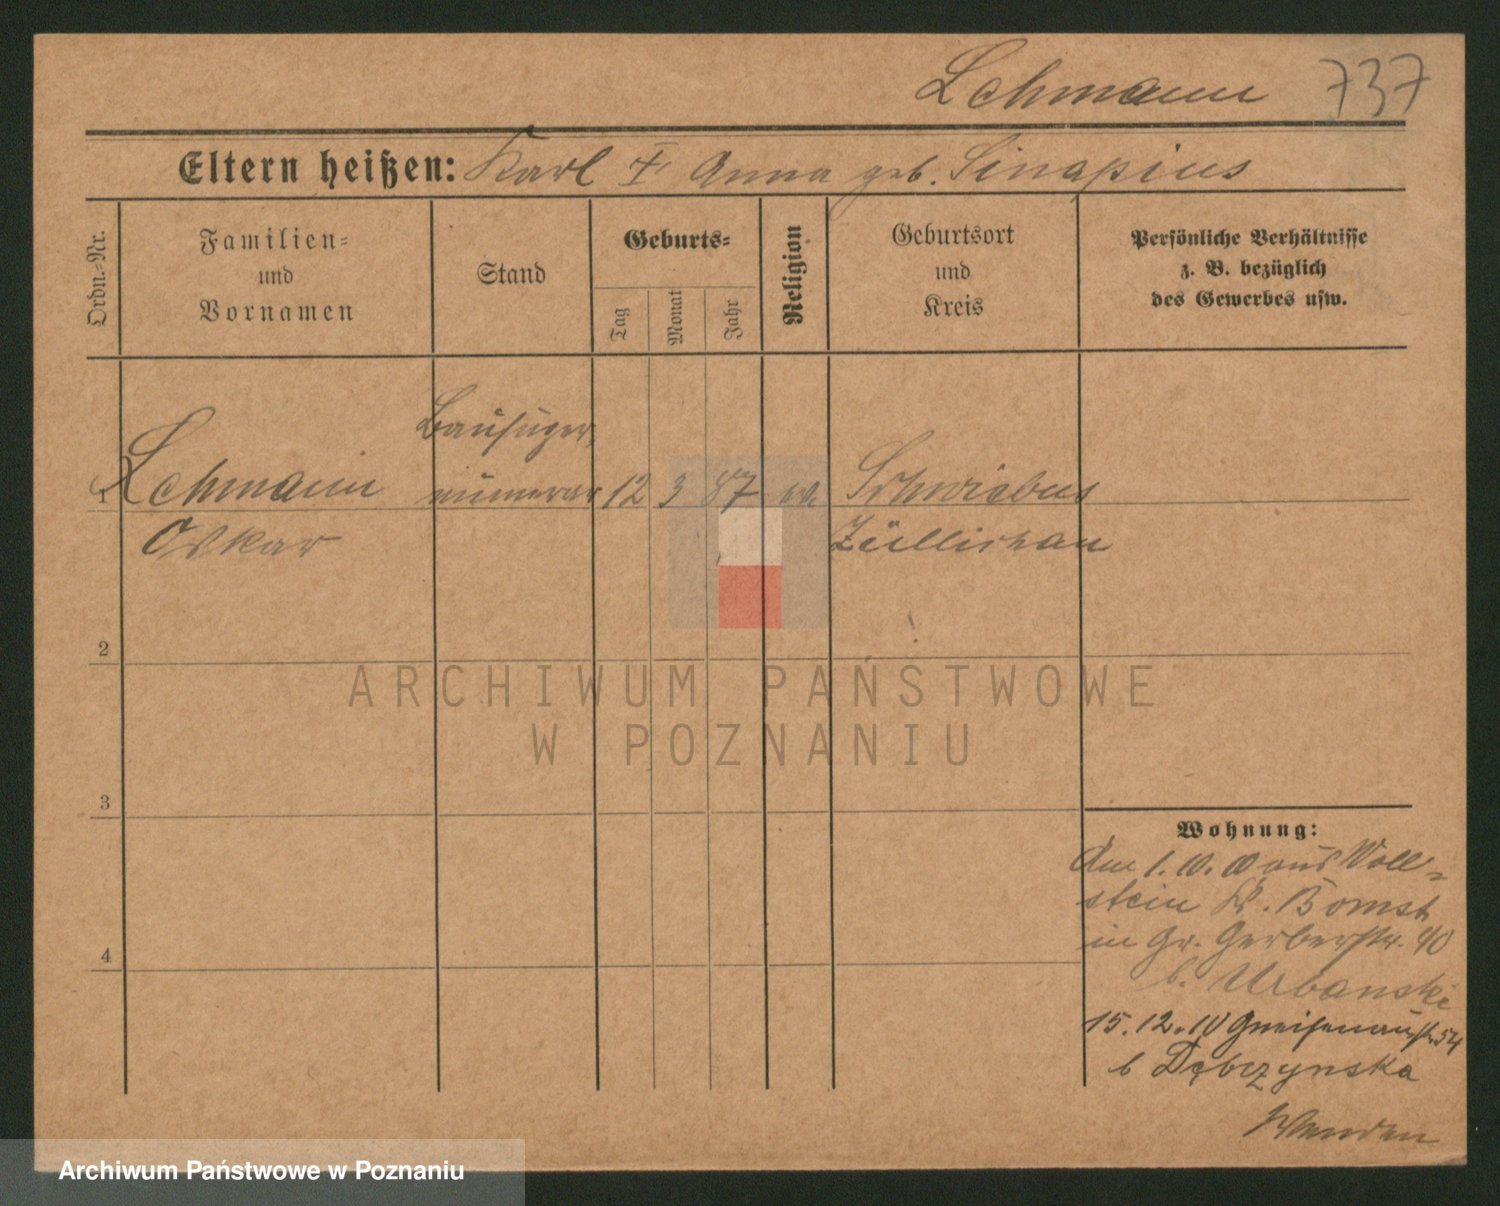 Lehmann 737
Eltern heißen: Karl † Anna geb. Sinapius
Ordn.-Nr.
Familien-
und
Vornamen
Stand
Geburts-
Tag
Monat
Jahr
Religion
Geburtsort
und
Kreis
Persönliche Verhältnisse
z. B. bezüglich
des Gewerbes usw.
Bausuper
1 Lehmann numerar 12 3 87 ev. Schwiebus
Oskar Züllichau
2
ARCHIWUM PAŃSTWOWE
W POZNANIU
3
4
Wohnung:
Am 1. 10. 10 aus Woll-
stein Kr. Bomst
in Gr. Gerberstr. 40
b. Urbanski
15.12.10 Gneisenaustr. 54
b Dębczynska
Wenden
Archiwum Państwowe w Poznaniu